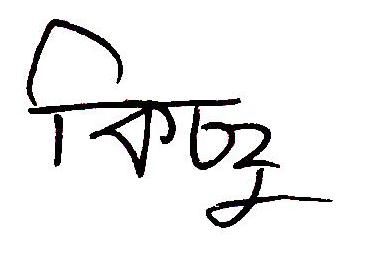 কিছু